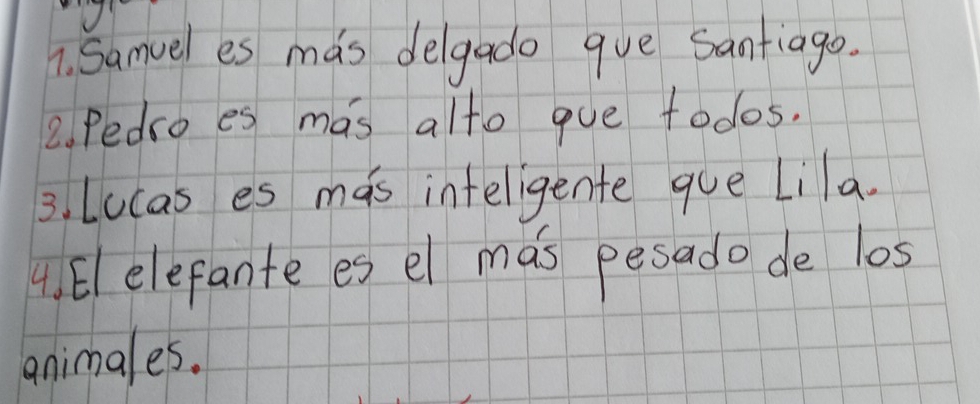 1. Samuel es más delgado que Santiago.
2. Pedro es más alto que todos.
3. Lucas es más inteligente que Lila.
4. El elefante es el más pesado de los
animales.